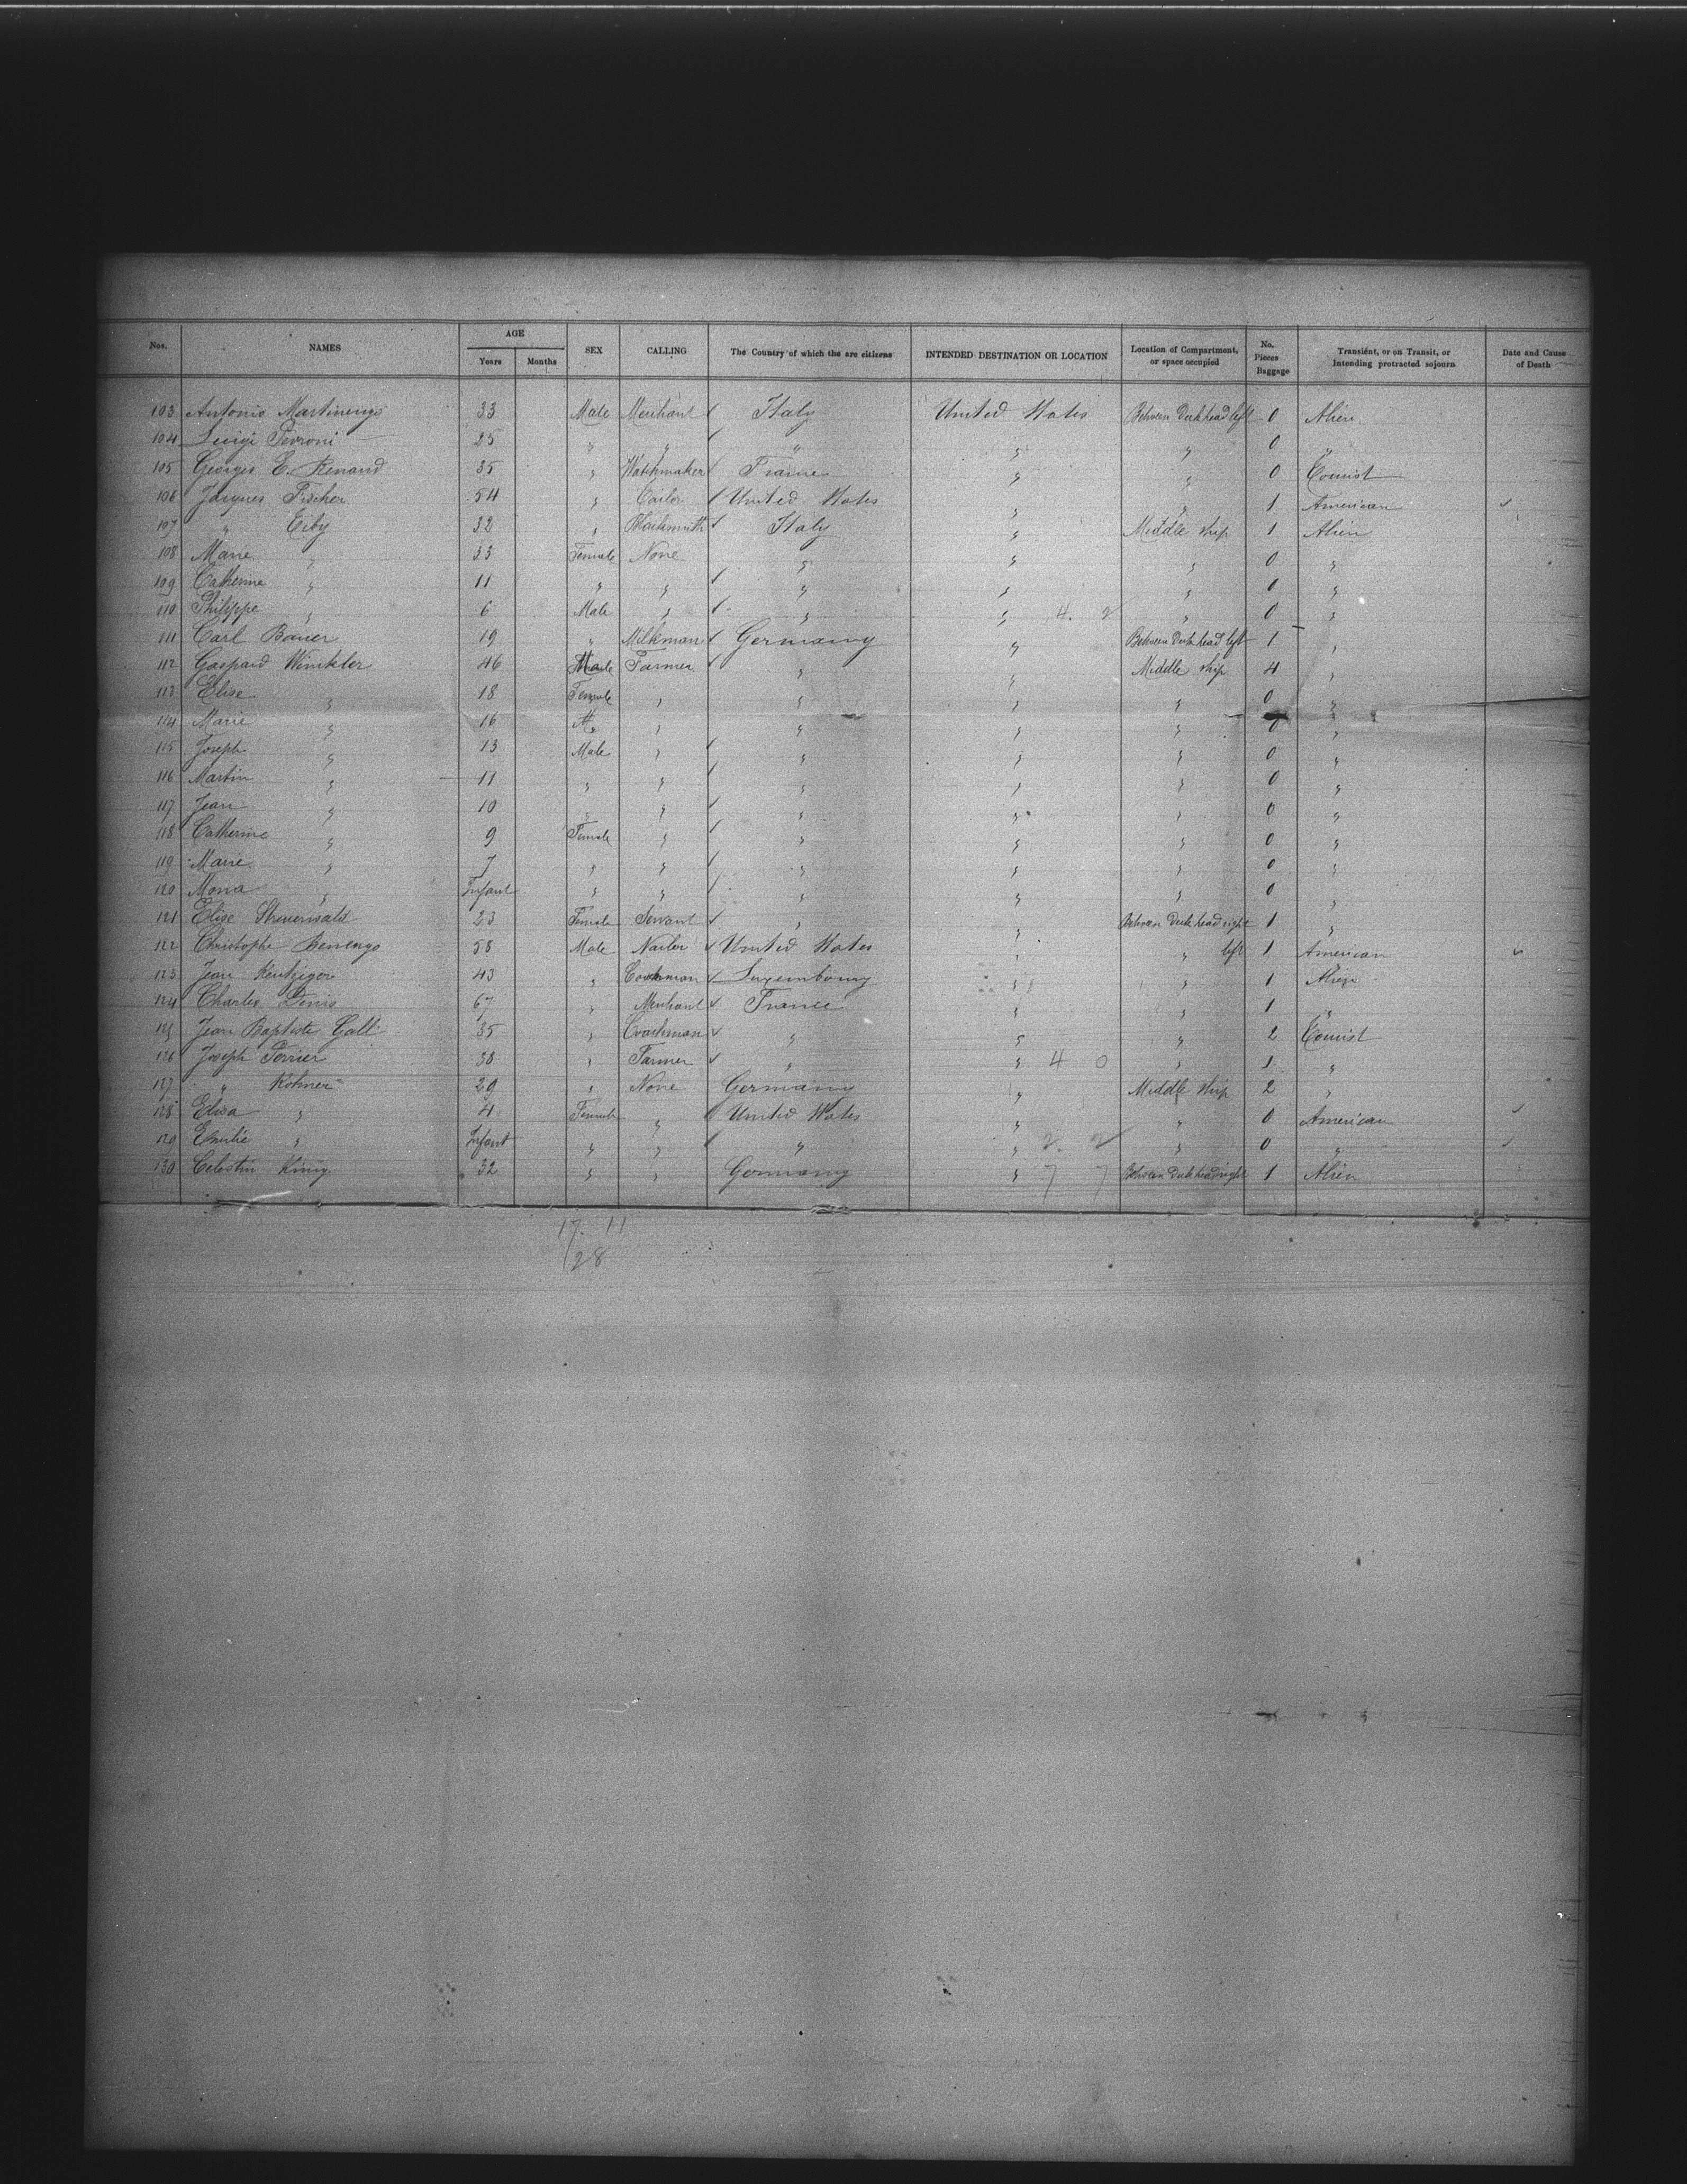 Nos. NAMES AGE Years Months SEX CALLING The Country of which the are citizens INTENDED DESTINATION OR LOCATION Location of Compartment, or space occupied No. Pieces Baggage Transient, or on Transit, or Intending protracted sojourn Date and Cause of Death
103 Antonio Martinengo 33 Male Merchant Italy United States Between Deck head left 0 Alien
104 Luigi Perroni 25 " " " " " 0 "
105 Georges E. Renand 35 " Watchmaker France " " 0 Tourist
106 Jacques Fischer 54 " Tailor United States " " 1 American
107 " Eiby 32 " Blacksmith Italy " Middle ship 1 Alien
108 Marie " 33 Female None " " " 0 "
109 Catherine " 11 " " " " " 0 "
110 Philippe " 6 Male " " " 4. 2 " 0 "
111 Carl Bauer 19 " Milkman Germany " Between Deck head left 1 "
112 Gaspard Winkler 46 Male Farmer " " Middle ship 4 "
113 Elise " 18 Female " " " " 0 "
114 Marie " 16 " " " " " 0 "
115 Joseph " 13 Male " " " " 0 "
116 Martin " 11 " " " " " 0 "
117 Jean " 10 " " " " " 0 "
118 Catherine " 9 Female " " " " 0 "
119 Marie " 7 " " " " " 0 "
120 Mona " Infant " " " " " 0 "
121 Elise 23 Female Servant " " Between Deck head right 1 "
122 Christophe 58 Male Nailer United States " " left 1 American
123 Jean 43 " Coachman Luxembourg " " 1 Alien
124 Charles Denis 67 " Merchant France " " 1 "
125 Jean Baptiste Gall 35 " Coachman " " " 2 Tourist
126 Joseph Perrier 38 " Farmer " " 4 0 " 1 "
127 " Rohmer 29 " None Germany " Middle ship 2 "
128 Elisa " 4 Female " United States " " 0 American
129 Emilie " Infant " " " " 2. 2 " 0 "
130 Celestin König 32 " " Germany " 7 7 Between Deck head right 1 Alien
17. 11
28